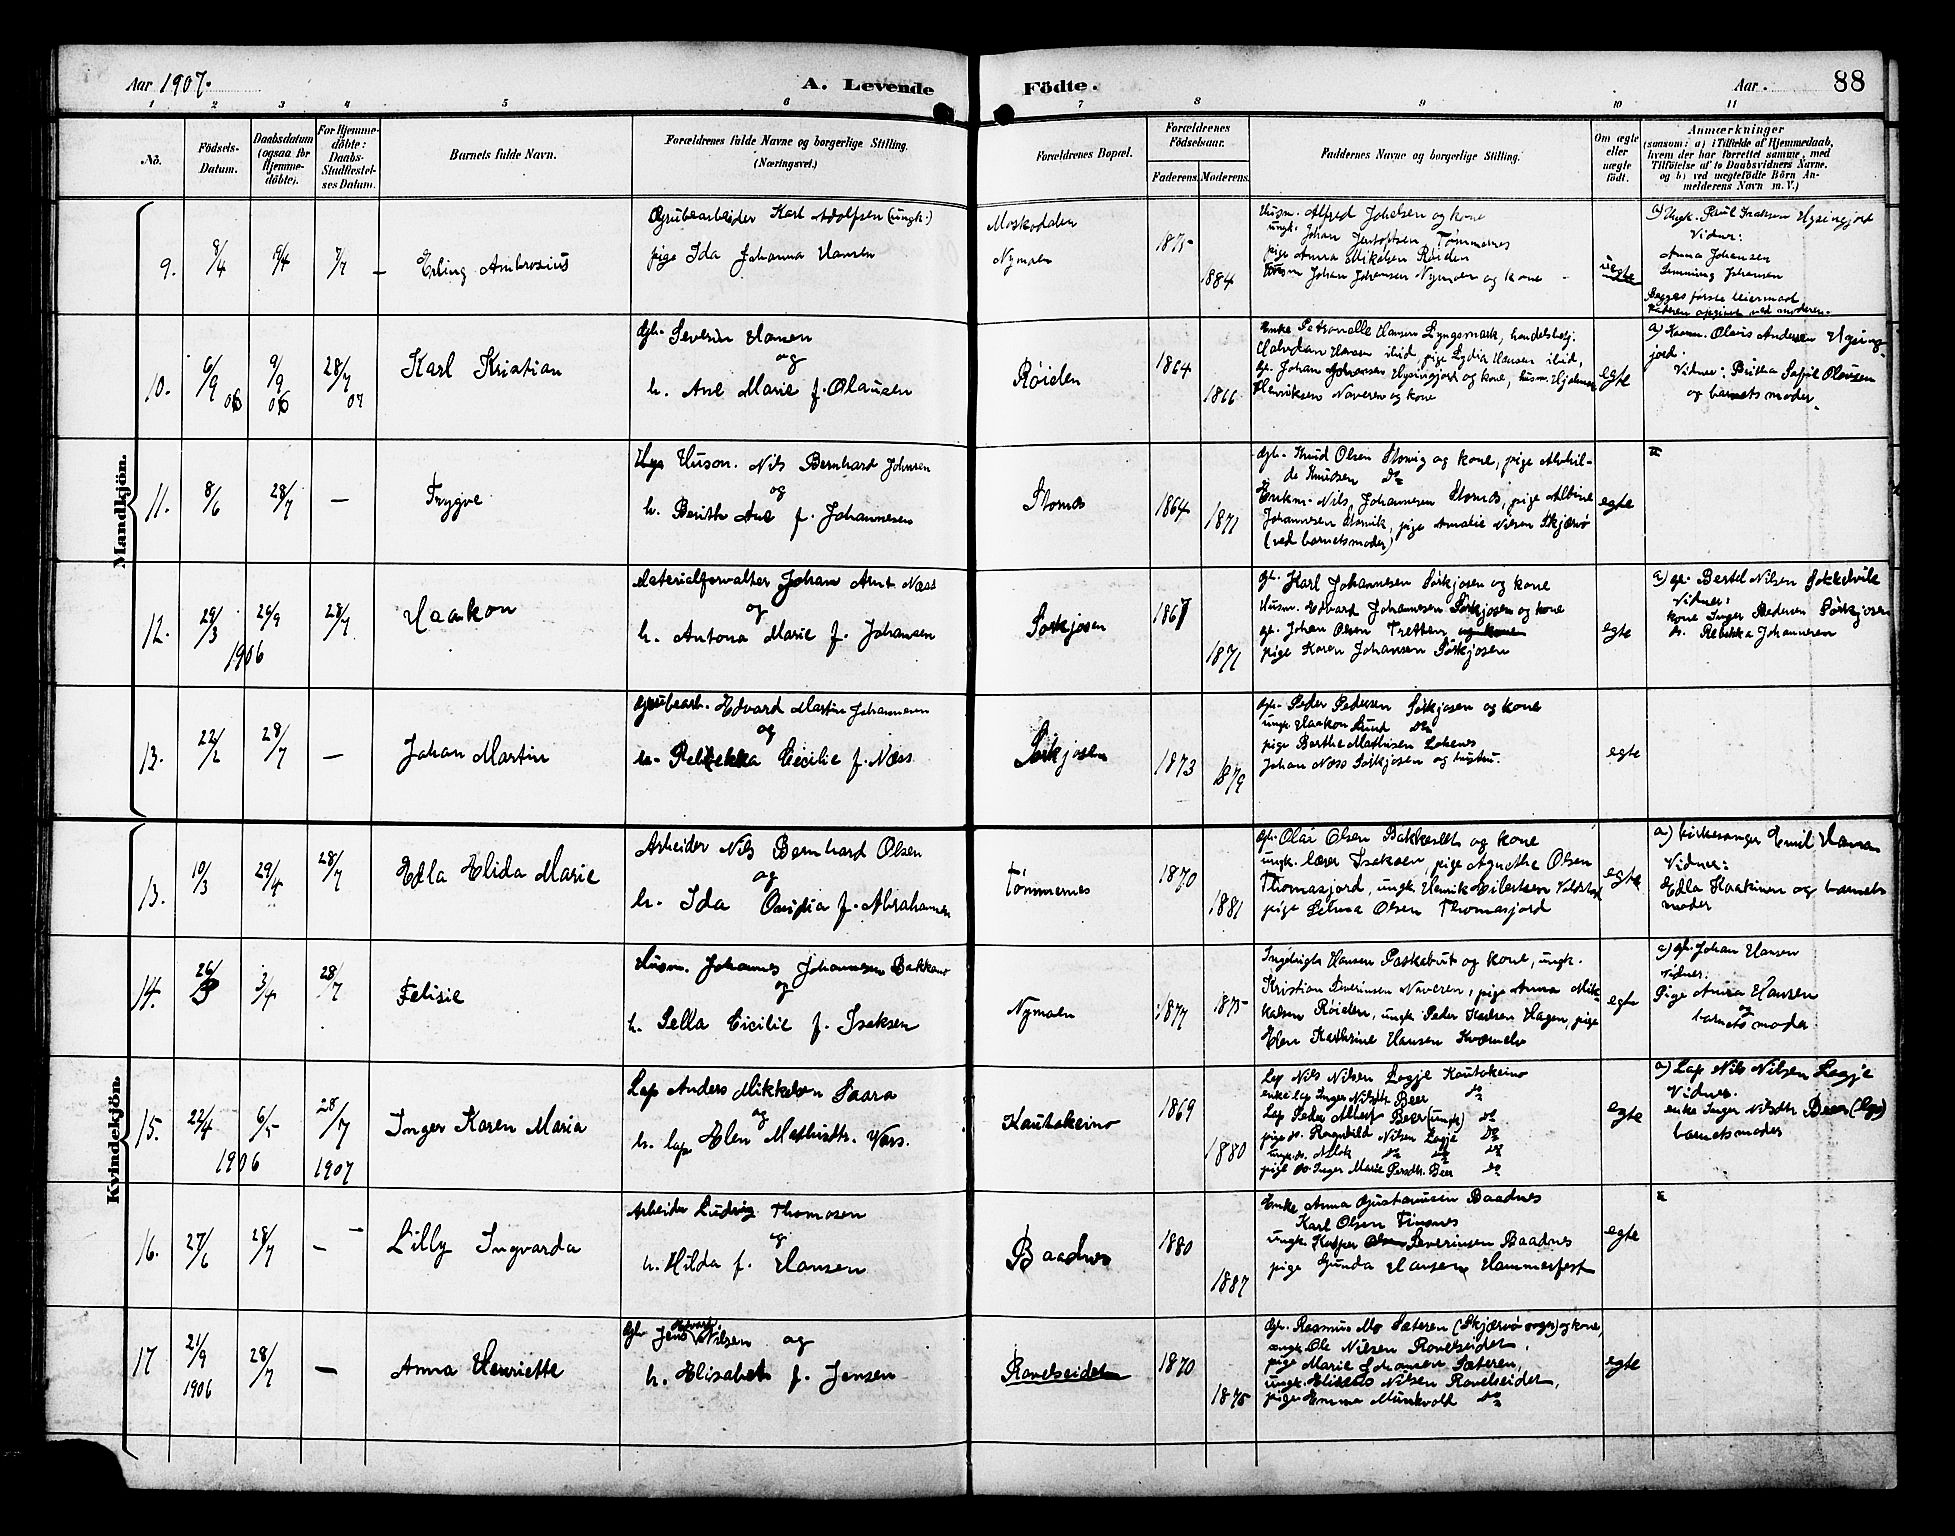 Aar 1907.
A. Levende Födte.
Aar .
88
1 2 3 4 5 6 7 8 9 10 11
No.
Födsels-Datum.
Daabsdatum (ogsaa for Hjemme-döbte).
For Hjemme-döbte: Daabs-Stadfæstel-ses Datum.
Barnets fulde Navn.
Forældrenes fulde Navne og borgerlige Stilling. (Næringsvei.)
Forældrenes Bopæl.
Forældrenes Födselsaar.
Faderens. Moderens.
Faddernes Navne og borgerlige Stilling.
Om ægte eller uægte födt.
Anmærkninger
(saasom: a) i Tilfælde af Hjemmedaab,
hvem der har forrettet samme, med
Tilföielse af to Daabsvidners Navne.
og b) ved uægtefödte Börn An-
melderens Navn m. V.)
Mandkjön.
9. 9/4 19/4 7/7 – Erling Ambrosius
Grubearbeider Karl Adolfsen (ungk.)
pige Ida Johanna Hansen
Moskodalen
Nymoen
1875
1884
Husm. Alfred Johelsen og kone
ungk. Johan Tømmernes
pige Anna Mikelsen Røiden
Johan Johansen Nymoen og kone
uegte
a) Ungk. Paul Isaksen Hysingjord
Vidner:
Anna Johansen
Johansen
Begges første leiermaal
Faderen opgivet ved moderen.
10. 6/9 06 9/9 06 28/7 07 Karl Kristian
Gb. Severin Hansen
og
h. Ane Marie f. Olausen
Røiden
1864
1866
Enke Petronalle Hansen Lyngsmark, handelsbetj.
Halvdan Hansen ibid, pige Lydia Hansen ibid,
Gb. Johan Johansen Hysingjord og kone, husm. Hjelmar
Henriksen Naveren og kone
egte
a) Olavis Andersen Hysing-
jord.
Vidner: Britha Sofie Olausen
og barnets moder.
11. 8/6 28/7 – Trygve
Husm. Nils Bernhard Johnsen
og
h. Berith Ane f. Johannesen
Stornes
1864
1871
Gb. Knud Olsen Storvig og kone, pige Alvhil-
de Knudsen Do
Enkm. Nils Johannesen Stornes, pige Albine
Johannesen Storvik, pige Amalie Nilsen Skjærvø
(ved barnets moder)
egte
12. 29/3 29/9 28/7 Haakon
1906
Materialforvalter Johan Arnt Næss
og
h. Antona Marie f. Johansen
Sørkjosen
1867
1871
gb. Karl Johannesen Sørkjosen og kone
Husm. Edvard Johannesen Sørkjosen og kone
gb. Johan Olsen Tretten og kone
pige Karen Johansen Sørkjosen
egte
a) gb. Bertel Nilsen Sokkelvik
Vidner:
kone Inger Pedersen Sørkjosen
do. Rebekka Johannesen
13. 22/2 28/7 – Johan Martin
Grubearb. Edvard Martin Johannesen
og
h. Rebekka Cecilie f. Næss
Sørkjosen
1873
1879
Gb. Peder Pedersen Sørkjosen og kone
ungk. Haakon Lund do
pige Berthe Mathisen
Johan Næss Sørkjosen og hustru.
egte
Kvindekjön.
13. 10/3 29/4 28/7 Edla Elida Marie
Arbeider Nils Bernhard Olsen
og
h. Ida Ovidia f. Abrahamsen
Tømmernes
1870
1881
Gb. Olai Olsen Bakkeslet og kone
ungk. lærer Isaksen, pige Agnethe Olsen
Thomasjord, ungk. Henrik Eilertsen
pige Petrine Olsen Thomasjord
egte
a) kirkesanger Emil Hansen
Vidner:
Edla Haakinen og barnets
moder
14. 26/3 3/4 28/7 Felisie
Husm. Johannes Johannesen Bakkemo
og
h. Pella Cicilie f. Isaksen
Nymoen
1877
1875
Ingbrigt Hansen Paskebut og kone, ungk.
Kristian Severinsen Naveren, pige Anna Mik-
kelsen Røiden, ungk. Peder Karlsen Hagen, pige
Elen Kathrine Hansen Kvænelv
egte
a) gb. Johan Hansen
Vidner:
Pige Anna Hansen
og
barnets moder
15. 22/4 6/5 28/7 Inger Karen Maria
1906 1907
Lap Anders Mikkelsen Saara
og
h. lap Elen Mathisdtr. Vars.
Kautokeino
1869
1880
Lap Nils Nilsen Logje Kautokeino
enke lap Inger Nilsdtr Beer do
Lap Peder Beer (ungk) do
pige do. Ragnhild Nilsen Logje Do
ungk. do. Aslak do do do
pige do. Inger Marie Persdtr. Beer do
egte
a) Lap Nils Nilsen Logje
Vidner.
enke Inger Nilsdtr Beer (lap)
barnets moder
16. 27/2 28/7 – – Lilly Ingvarda
Arbeider Ludvig Thomasen
og
h. Hilda f. Hansen
Baadnes
1880
1887
Enke Anna Gustavusen Baadnes
Karl Olsen Finsnes
ungk. Kasper Olsen Severinsen Baadnes
pige Gunda Hansen Hammerfest
egte
17 21/9 1906 28/7 – Anna Henriette
Gb. Jens Nilsen og
h. Elisabet f. Jensen
Ravelseidet
1870
1875
Gb. Rasmus Mo Sæteren (Skjærvø sogn) og kone,
ungk. Ole Nilsen Ravelseidet,
pige Marie Johansen Sæteren,
ungk. Nilsen Ravelseidet,
pige Emma Munkvold do
egte